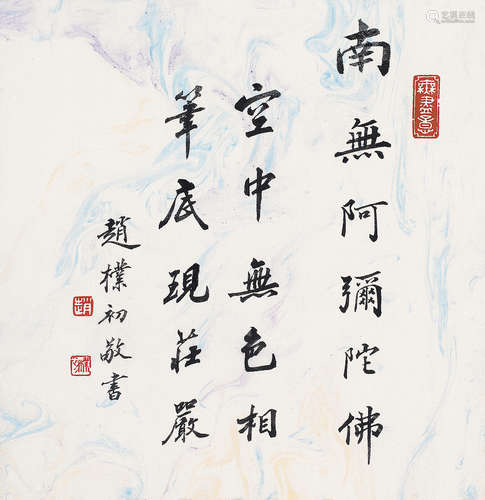 南無阿彌陀佛
空中無色相
筆底現莊嚴
趙樸初敬書
無盡意
趙